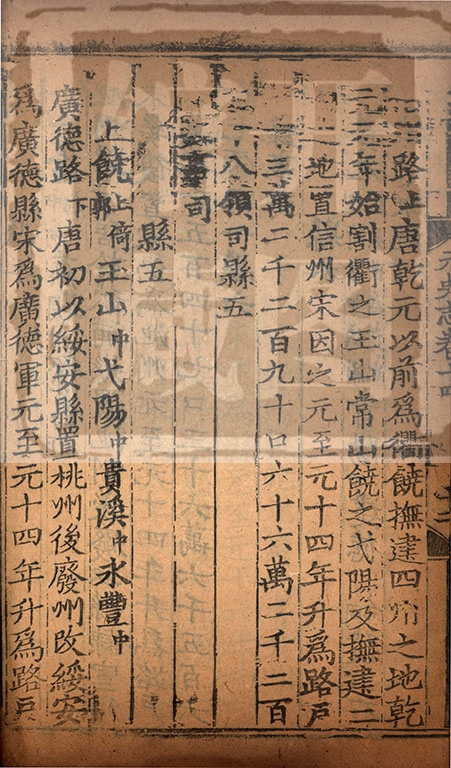 元史志卷十四
路上唐乾元以前爲衢饒撫建四州之地乾
元元年始割衢之玉山常山饒之弋陽及撫建二
地置信州宋因之元至元十四年升爲路戶
三萬二千二百九十口六十六萬二千二百
八領司縣五
司
縣五
上饒上倚郭玉山中弋陽中貴溪中永豐中
廣德路下唐初以綏安縣置桃州後廢州改綏安
爲廣德縣宋爲廣德軍元至元十四年升爲路戶